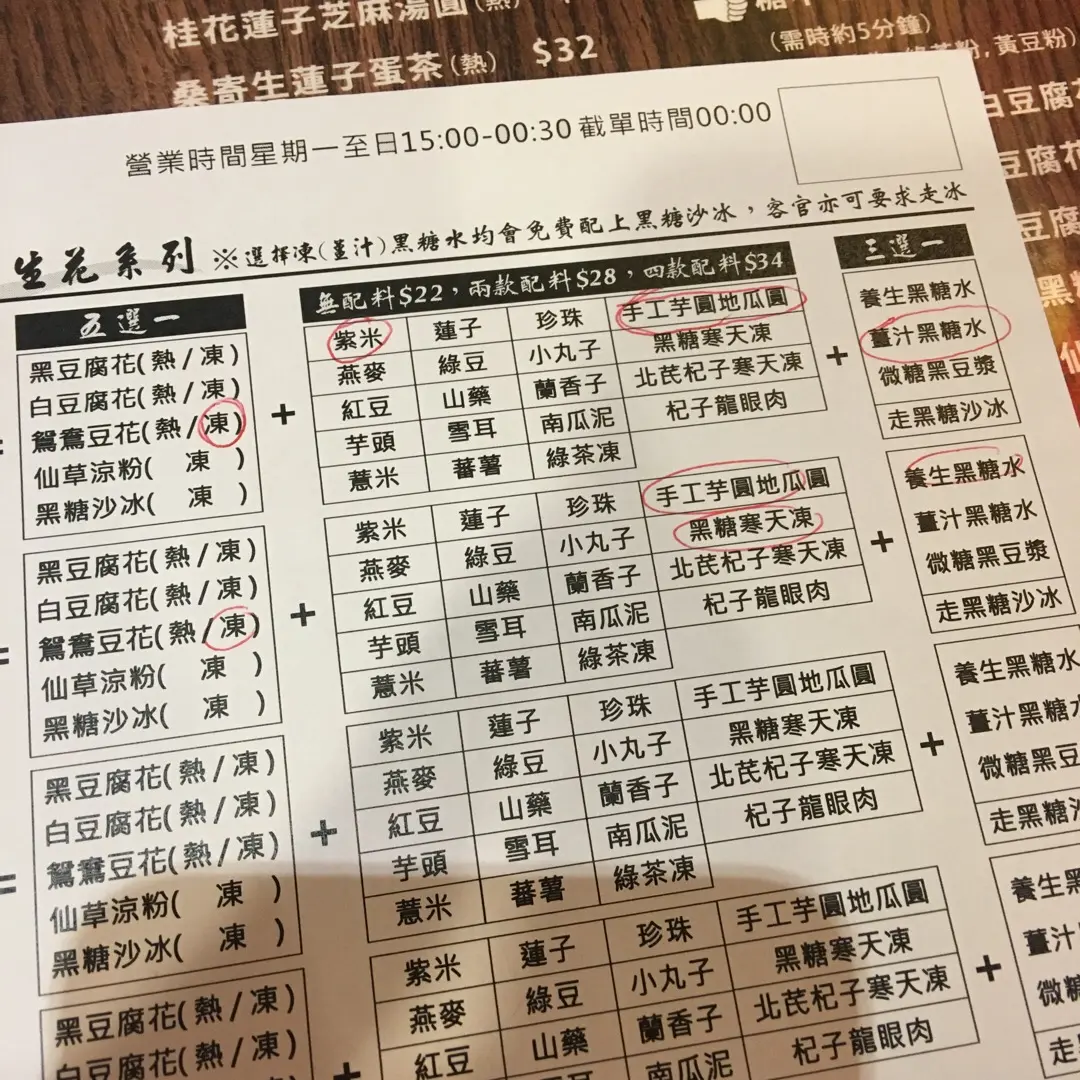 桂花蓮子芝麻湯圓(熱)
桑寄生蓮子蛋茶(熱) $32
(需時約5分鐘)
粉,黃豆粉)
白豆腐花
豆腐花
營業時間星期一至日15:00-00:30 截單時間00:00
生花系列 ※選擇凍(薑汁)黑糖水均會免費配上黑糖沙冰，客官亦可要求走冰
五選一
無配料$22，兩款配料$28，四款配料$34
三選一
黑豆腐花(熱/凍)
白豆腐花(熱/凍)
鴛鴦豆花(熱/凍)
仙草涼粉( 凍 )
黑糖沙冰( 凍 )
+
紫米 蓮子 珍珠 手工芋圓地瓜圓
燕麥 綠豆 小丸子 黑糖寒天凍
紅豆 山藥 蘭香子 北芪杞子寒天凍
芋頭 雪耳 南瓜泥 杞子龍眼肉
薏米 蕃薯 綠茶凍
+
養生黑糖水
薑汁黑糖水
微糖黑豆漿
走黑糖沙冰
黑豆腐花(熱/凍)
白豆腐花(熱/凍)
鴛鴦豆花(熱/凍)
仙草涼粉( 凍 )
黑糖沙冰( 凍 )
+
紫米 蓮子 珍珠 手工芋圓地瓜圓
燕麥 綠豆 小丸子 黑糖寒天凍
紅豆 山藥 蘭香子 北芪杞子寒天凍
芋頭 雪耳 南瓜泥 杞子龍眼肉
薏米 蕃薯 綠茶凍
+
養生黑糖水
薑汁黑糖水
微糖黑豆漿
走黑糖沙冰
黑豆腐花(熱/凍)
白豆腐花(熱/凍)
鴛鴦豆花(熱/凍)
仙草涼粉( 凍 )
黑糖沙冰( 凍 )
+
紫米 蓮子 珍珠 手工芋圓地瓜圓
燕麥 綠豆 小丸子 黑糖寒天凍
紅豆 山藥 蘭香子 北芪杞子寒天凍
芋頭 雪耳 南瓜泥 杞子龍眼肉
薏米 蕃薯 綠茶凍
+
養生黑糖水
薑汁黑糖
微糖黑豆
走黑糖
黑豆腐花(熱/凍)
白豆腐花(熱/凍)
+
紫米 蓮子 珍珠 手工芋圓地瓜圓
燕麥 綠豆 小丸子 黑糖寒天凍
紅豆 山藥 蘭香子 北芪杞子寒天凍
南瓜泥 杞子龍眼肉
+
養生
薑汁
微糖
走